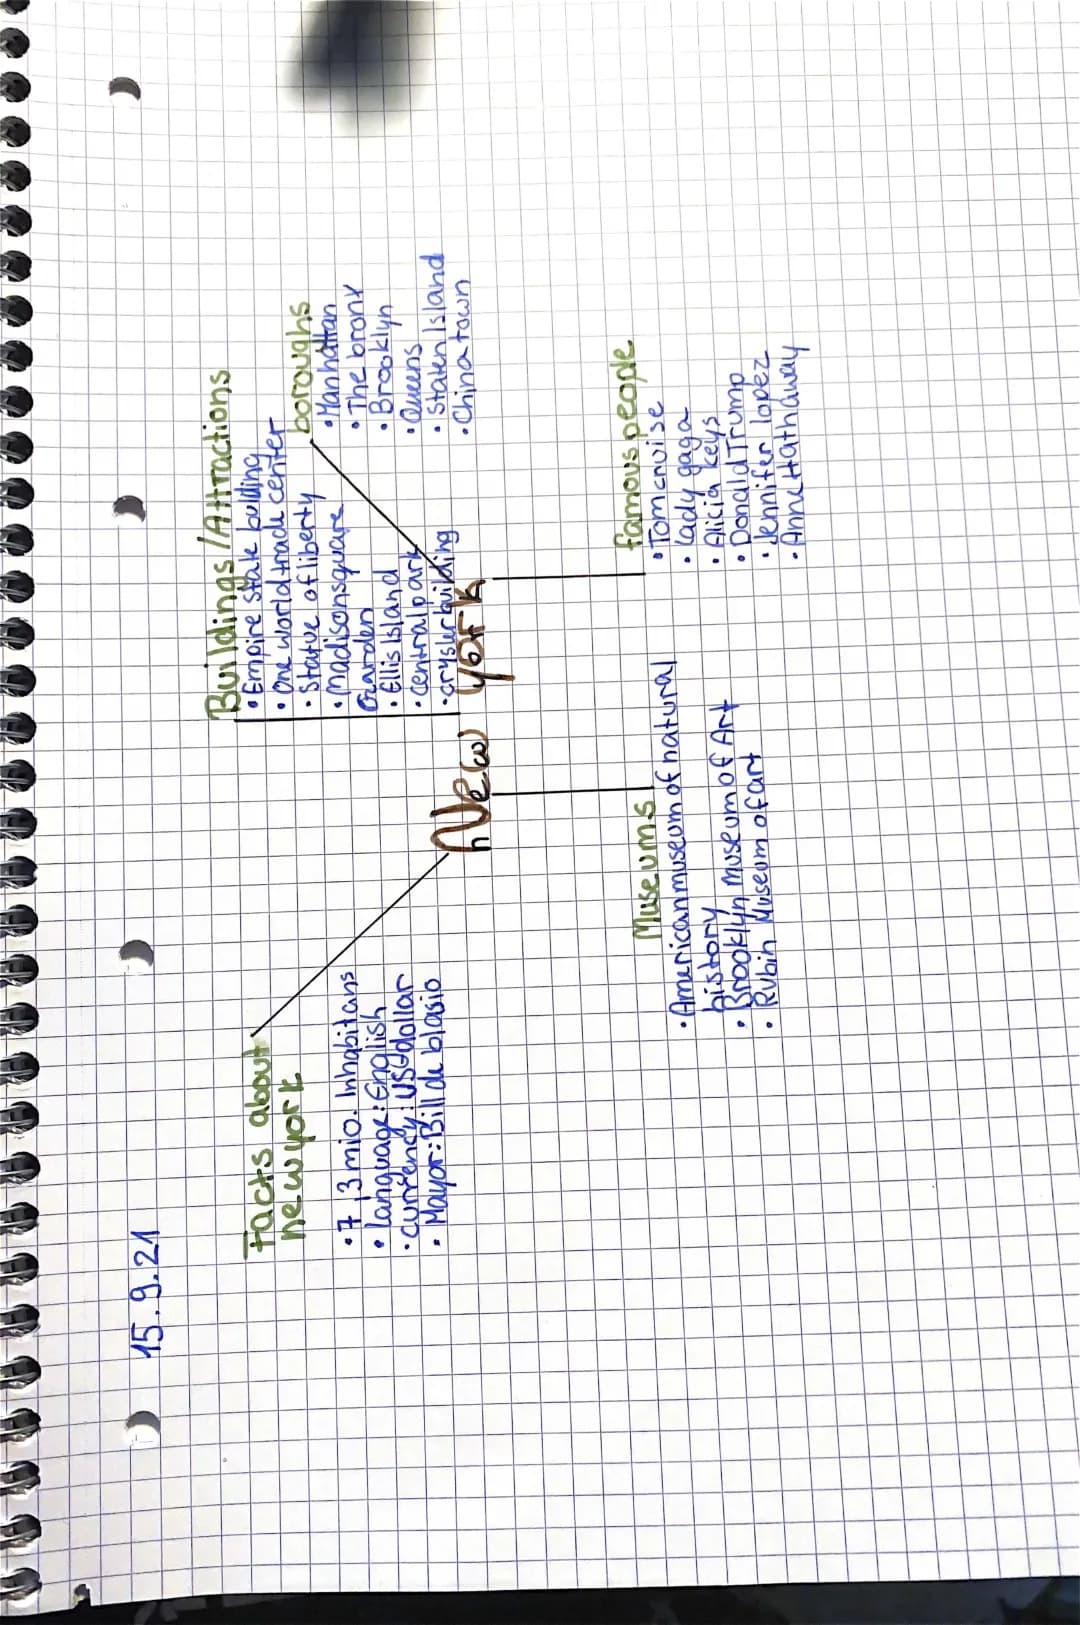 15.9.21
Facts about
new york
• 7,3 mio. Inhabitans
• language: English
• currency: US dollar
• Mayor: Bill de blasio
Buildings / Attractions
• Empire state bulding
• One world trade center
• Statue of liberty
• Madison square
Garden
• Ellis Island
• central park
• cryslerbuilding
boroughs
• Manhattan
• The bronx
• Brooklyn
• Queens
• Staten Island
• China town
New york
Museums
• American museum of natural
history
• Brooklyn museum of Art
• Rubin Museum of art
famous people
• Tom cruise
• Lady gaga
• Alicia keys
• Donald Trump
• Jennifer lopez
• Anne Hathaway